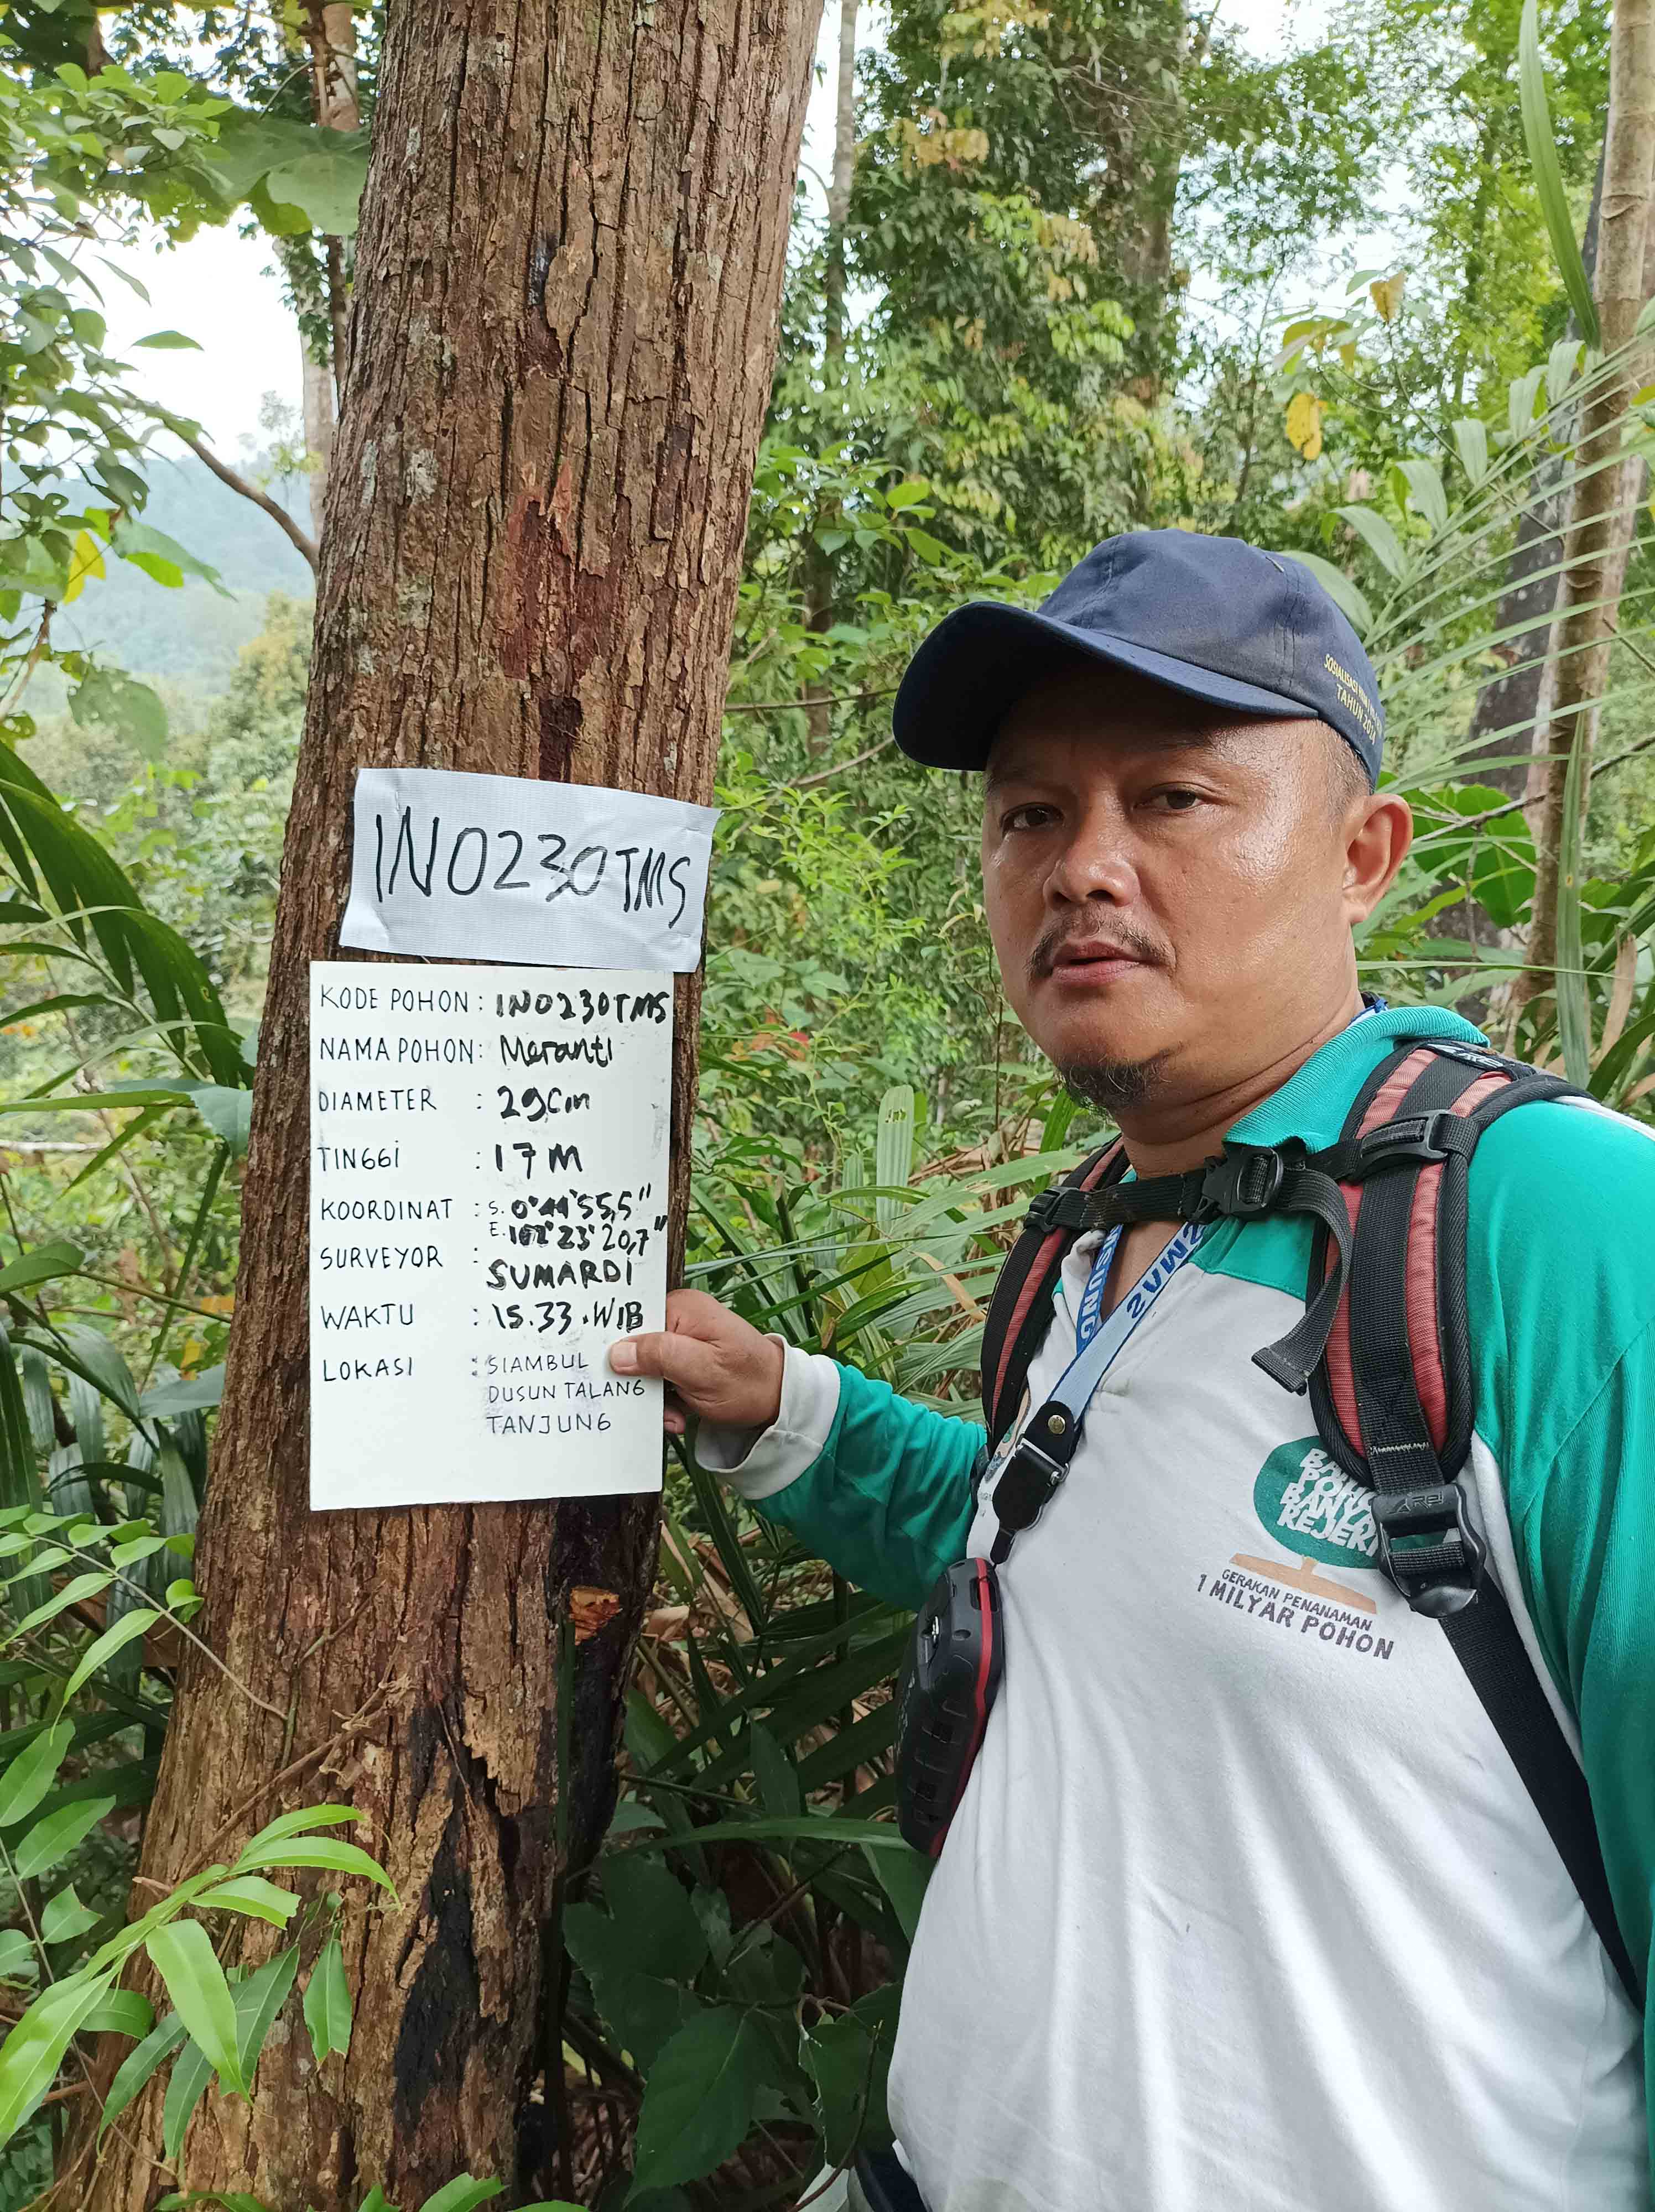 IN0230TMS
KODE POHON : IN0230TMS
NAMA POHON : Meranti
DIAMETER : 29cm
TINGGI : 17 M
KOORDINAT : S. 0° 55,5"
E. 102° 23' 20,7"
SURVEYOR : SUMARDI
WAKTU : 15.33.WIB
LOKASI : SIAMBUL
DUSUN TALANG
TANJUNG
SOSIALISASI
TAHUN 2014
GERAKAN PENANAMAN
1 MILYAR POHON